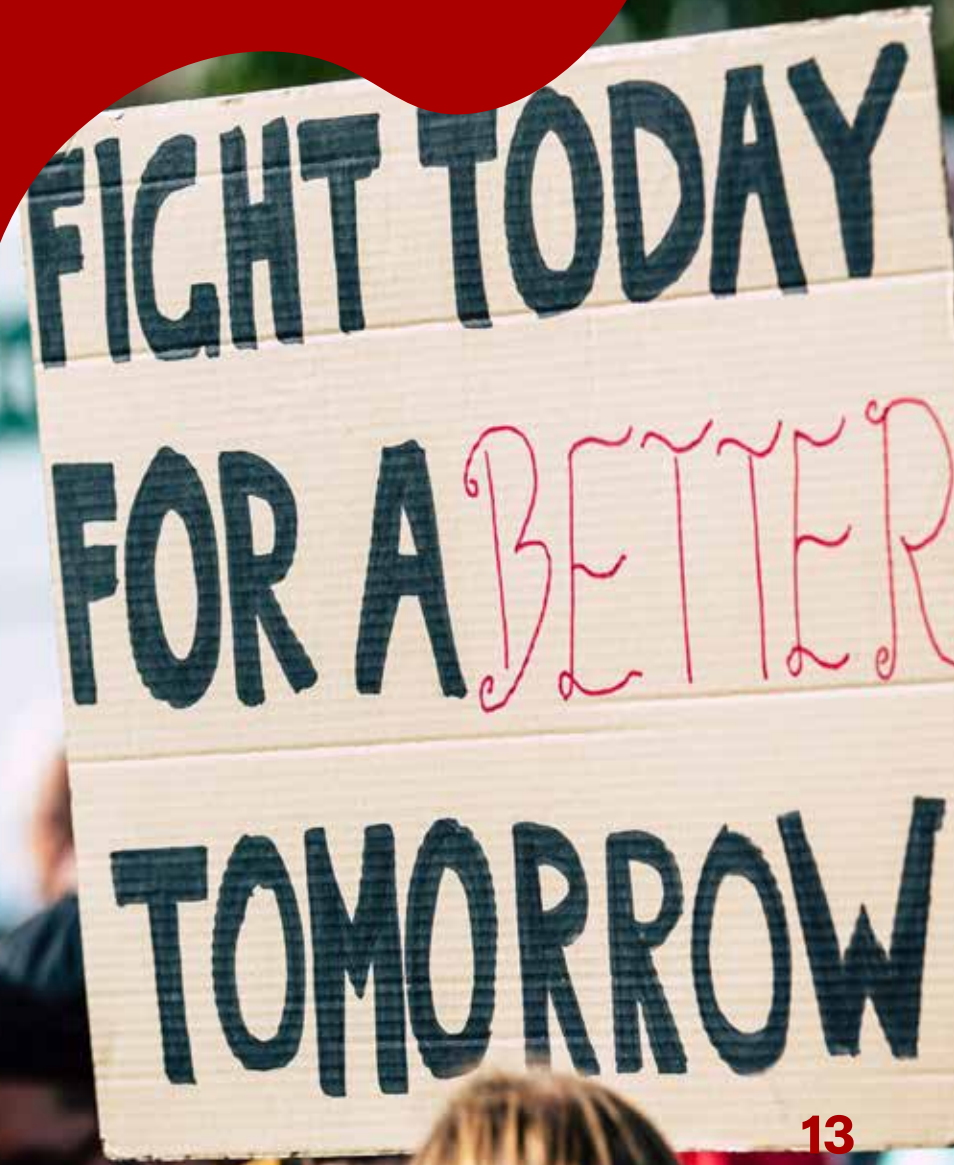 FIGHT TODAY
FOR A BETTER
TOMORROW
13